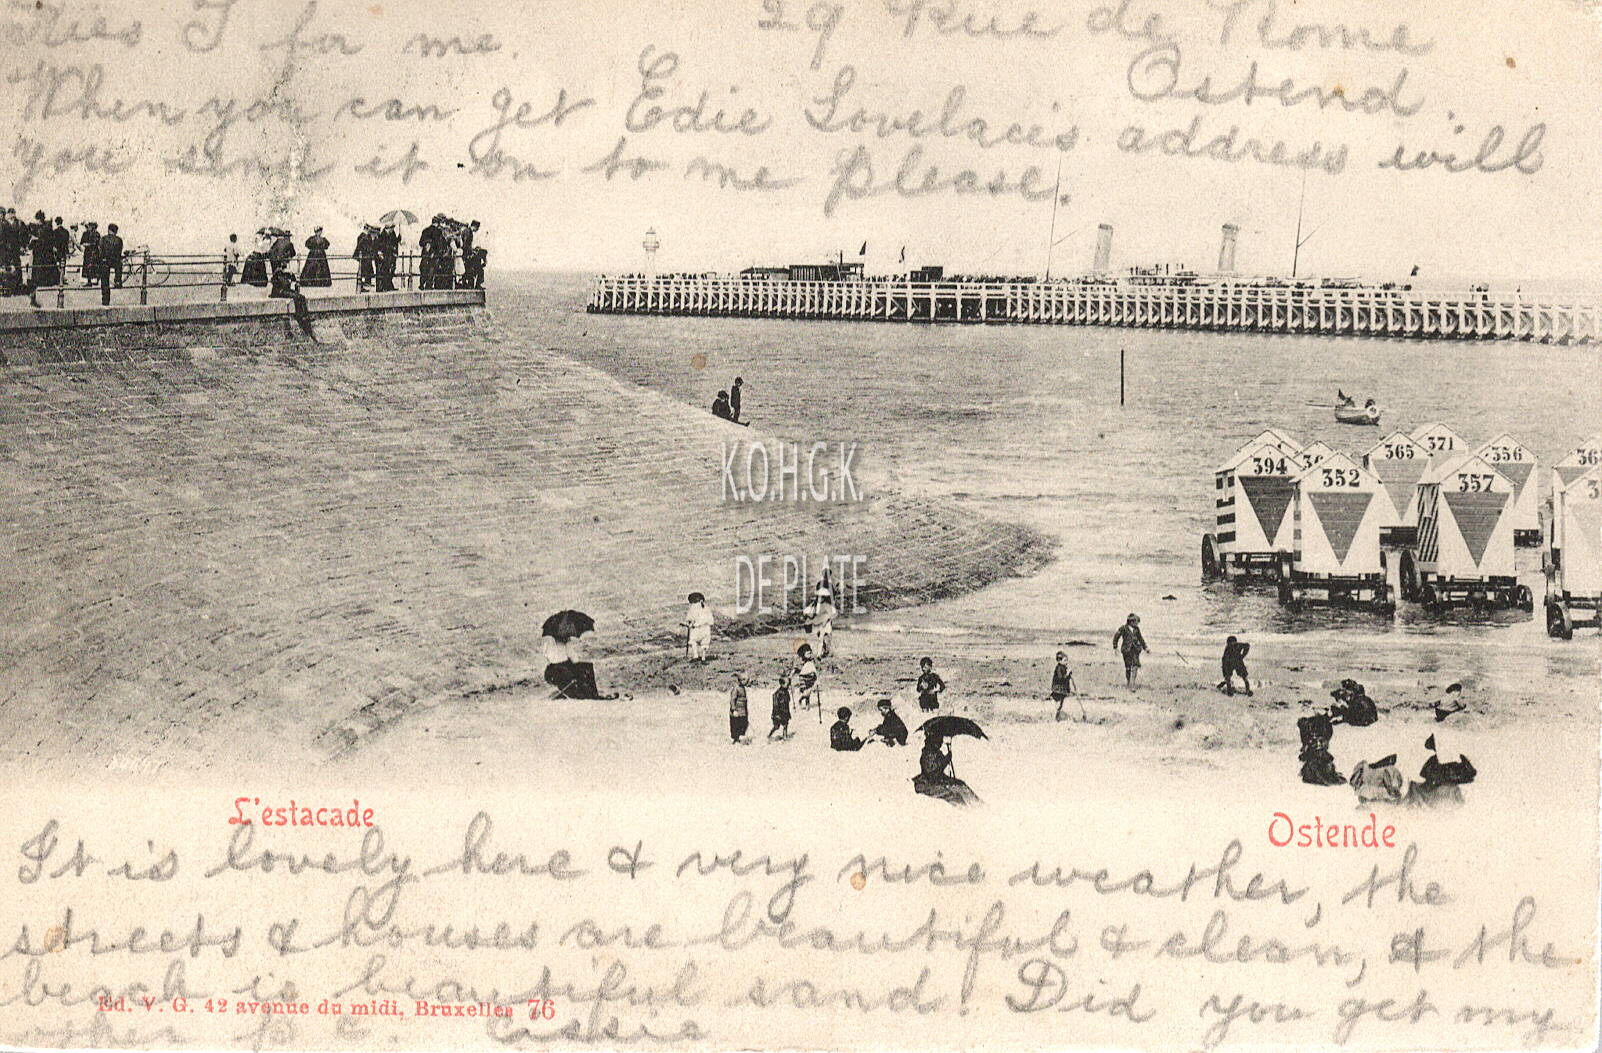 29 Rue de Rome
Ostend.
Kies I for me.
When you can get Edie Lovelace's address will
you send it on to me please.
394
352
365
371
356
357
36
K.O.H.G.K.
DE PLATE
L'estacade
Ostende
It is lovely here & very nice weather, the
streets & houses are beautiful & clean, & the
beach is beautiful sand. Did you get my
other p. c. Cissie
Ed. V. G. 42 avenue du midi, Bruxelles 76